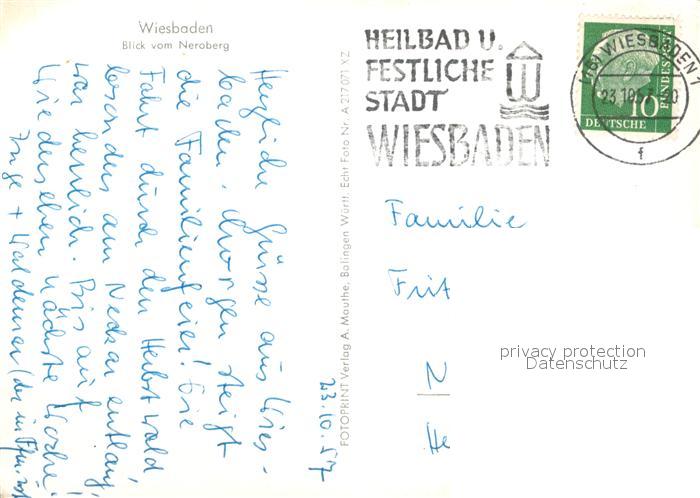 Wiesbaden
Blick vom Neroberg
Herzliche Grüsse aus Wies-
baden. Morgen steigt
die Familienfeier! Die
Fahrt durch den Herbstwald,
besonders am Neckar entlang,
war herrlich. Bis auf
Wiedersehen nächste Woche!
Inge + Waldemar (der in
23.10.57
FOTOPRINT Verlag A. Mauthe, Balingen Württ. Echt Foto Nr. A 217 071 XZ
HEILBAD U.
FESTLICHE
STADT
WIESBADEN
W
(16) WIESBADEN 1
23.10.57
f
10
DEUTSCHE
BUNDESPOST
Familie
Frit
N
He
privacy protection
Datenschutz